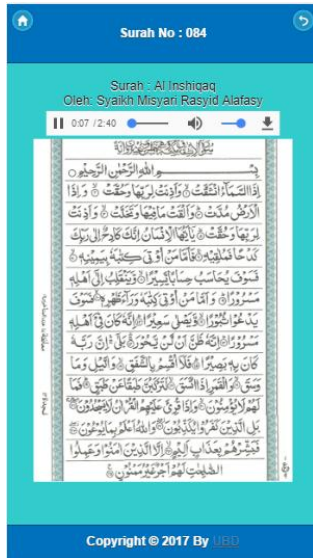 Surah No : 084
Surah : Al Inshiqaq
Oleh: Syaikh Misyari Rasyid Alafasy
0:07 / 2:40
بِسْمِ اللهِ الرَّحْمٰنِ الرَّحِيْمِ
اِذَا السَّمَآءُ انْشَقَّتْ وَاَذِنَتْ لِرَبِّهَا وَحُقَّتْ وَاِذَا
الْاَرْضُ مُدَّتْ وَاَلْقَتْ مَا فِيْهَا وَتَخَلَّتْ وَاَذِنَتْ
لِرَبِّهَا وَحُقَّتْ يٰٓاَيُّهَا الْاِنْسَانُ اِنَّكَ كَادِحٌ اِلٰى رَبِّكَ
كَدْحًا فَمُلٰقِيْهِ فَاَمَّا مَنْ اُوْتِيَ كِتٰبَهٗ بِيَمِيْنِهٖ
فَسَوْفَ يُحَاسَبُ حِسَابًا يَّسِيْرًا وَّيَنْقَلِبُ اِلٰٓى اَهْلِهٖ
مَسْرُوْرًا وَاَمَّا مَنْ اُوْتِيَ كِتٰبَهٗ وَرَآءَ ظَهْرِهٖ فَسَوْفَ
يَدْعُوْا ثُبُوْرًا وَّيَصْلٰى سَعِيْرًا اِنَّهٗ كَانَ فِيْٓ اَهْلِهٖ
مَسْرُوْرًا اِنَّهٗ ظَنَّ اَنْ لَّنْ يَّحُوْرَ بَلٰٓى اِنَّ رَبَّهٗ
كَانَ بِهٖ بَصِيْرًا فَلَآ اُقْسِمُ بِالشَّفَقِ وَالَّيْلِ وَمَا
وَسَقَ وَالْقَمَرِ اِذَا اتَّسَقَ لَتَرْكَبُنَّ طَبَقًا عَنْ طَبَقٍ فَمَا
لَهُمْ لَا يُؤْمِنُوْنَ وَاِذَا قُرِئَ عَلَيْهِمُ الْقُرْاٰنُ لَا يَسْجُدُوْنَ
بَلِ الَّذِيْنَ كَفَرُوْا يُكَذِّبُوْنَ وَاللهُ اَعْلَمُ بِمَا يُوْعُوْنَ
فَبَشِّرْهُمْ بِعَذَابٍ اَلِيْمٍ اِلَّا الَّذِيْنَ اٰمَنُوْا وَعَمِلُوا
الصّٰلِحٰتِ لَهُمْ اَجْرٌ غَيْرُ مَمْنُوْنٍ
Copyright © 2017 By UBD